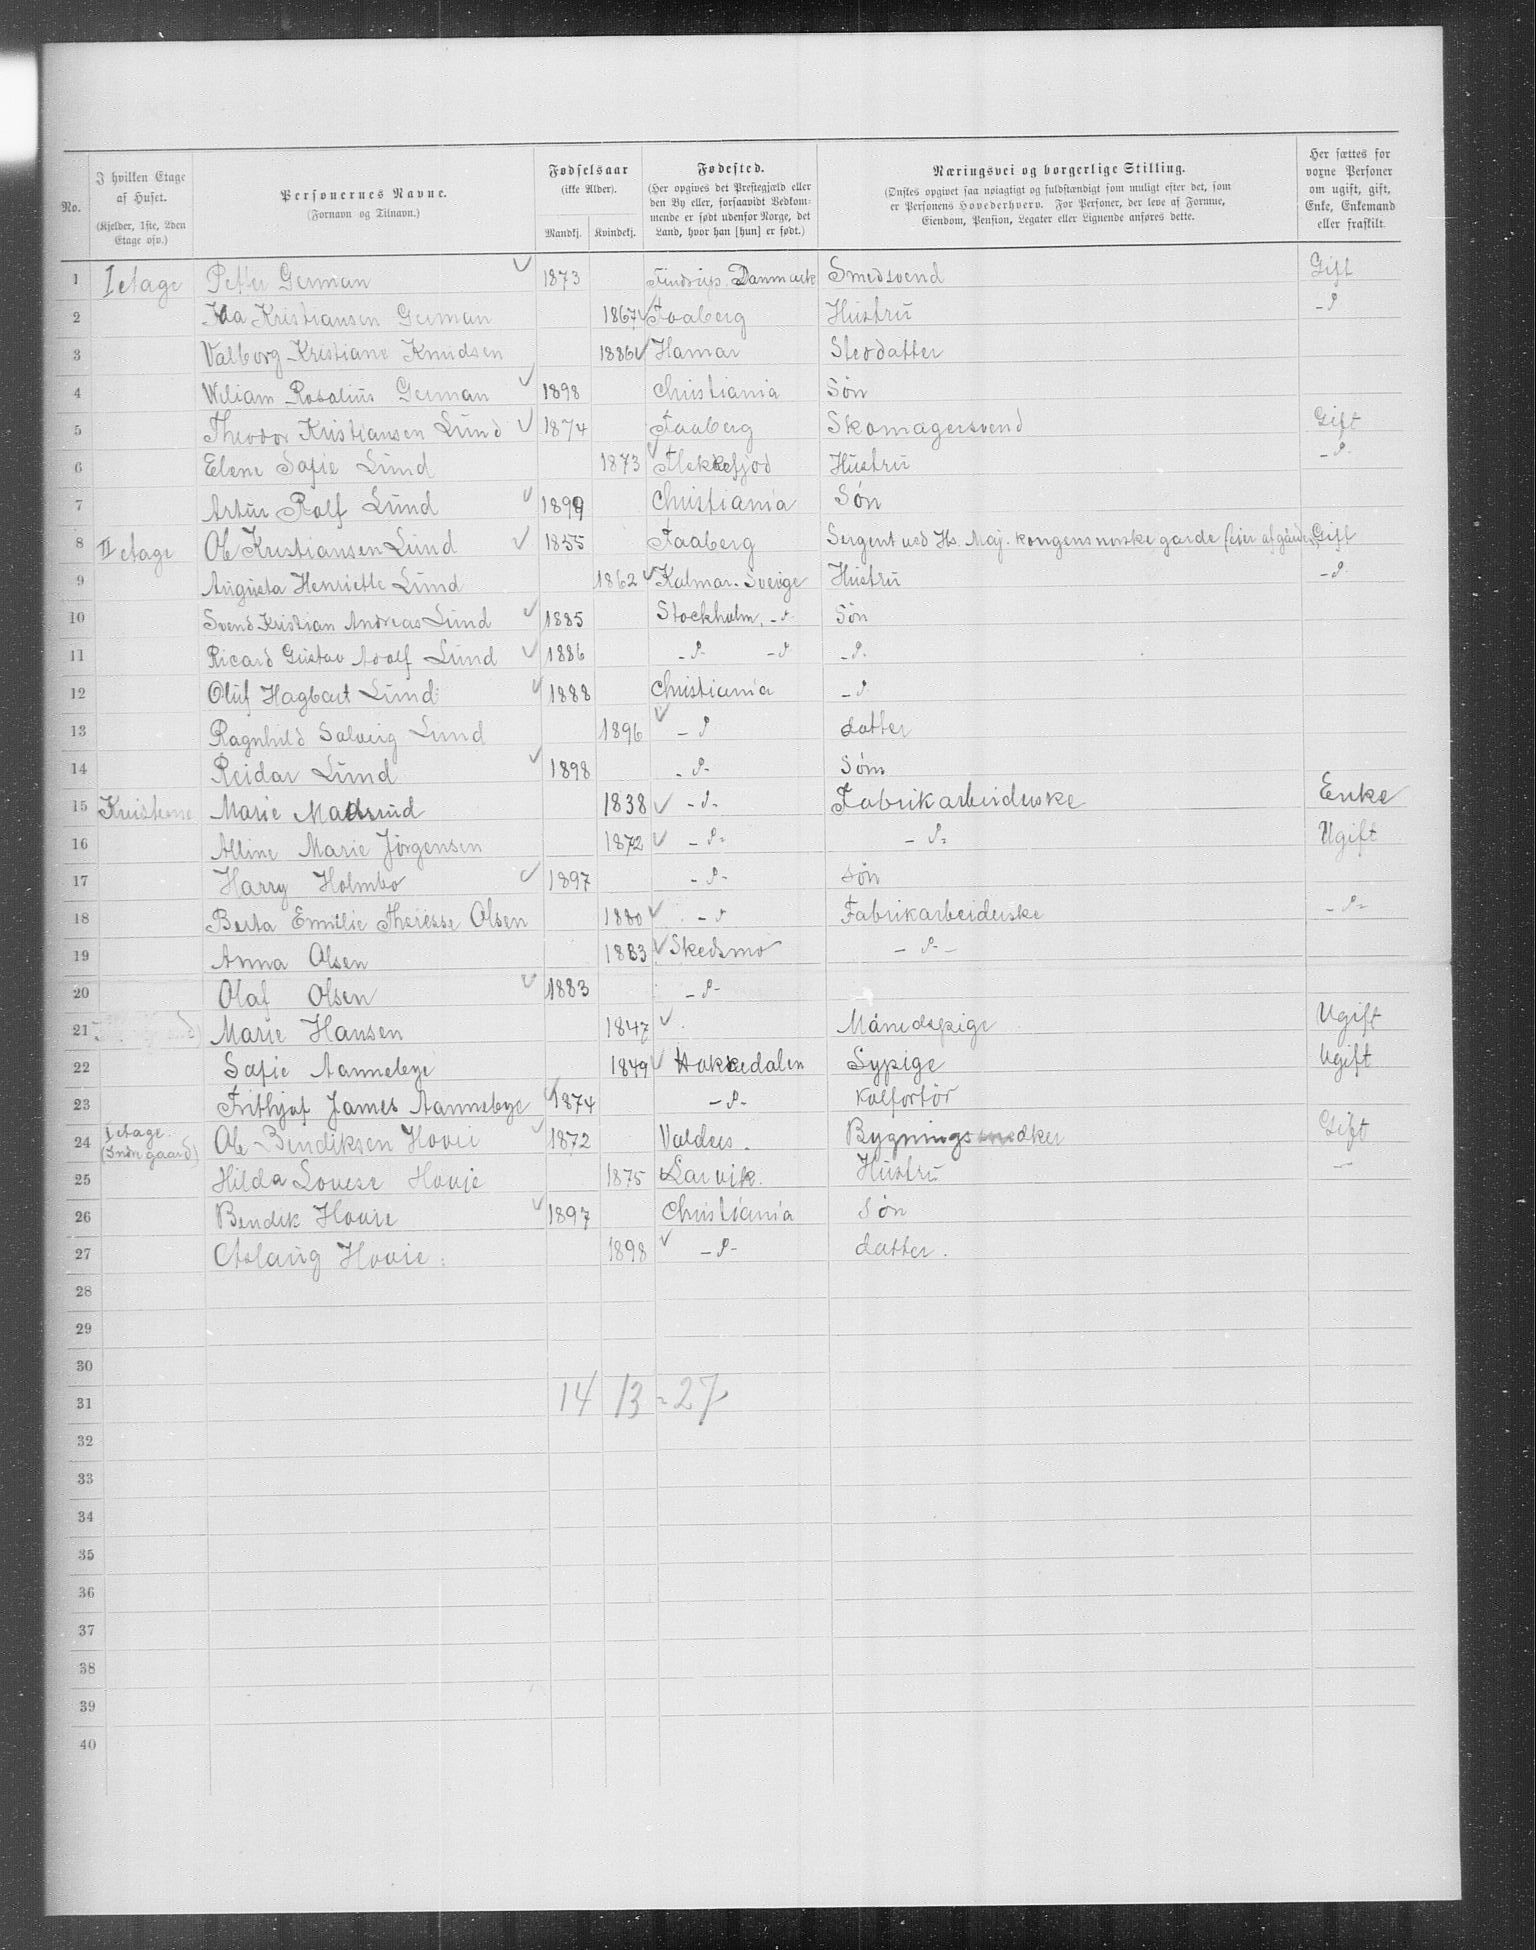 No. | I hvilken Etage af Huset. (Kjelder, 1ste, 2den Etage osv.) | Personernes Navne. (Fornavn og Tilnavn.) | Fødselsaar (ikke Alder). Mandkj. | Kvindekj. | Fødested. (Her opgives det Prestegjæld eller den By eller, forsaavidt Vedkommende er født udenfor Norge, det Land, hvor han [hun] er født.) | Næringsvei og borgerlige Stilling. (Ønskes opgivet saa nøiagtigt og fuldstændigt som muligt efter det, som er Personens Hovederhverv. For Personer, der leve af Formue, Eiendom, Pension, Legater eller Lignende anføres dette.) | Her sættes for voxne Personer om ugift, gift, Enke, Enkemand eller fraskilt.
1 I etage Peter German 1873 Danmark Smedsvend Gift
2 Kristiansen German 1867 Faaberg Hustru -"-
3 Valborg Kristiane Knudsen 1886 Hamar Stedatter
4 Wiliam Rosalius German 1898 Christiania Søn
5 Theodor Kristiansen Lund 1874 Faaberg Skomagersvend Gift
6 Elene Sofie Lund 1873 Flekkefjod Hustru -"-
7 Artur Rolf Lund 1899 Christiania Søn
8 II etage Ole Kristiansen Lund 1855 Faaberg Sergent ved Hs. Maj. kongens norske garde (eier af gården) Gift
9 Augusta Henriette Lund 1862 Kalmar. Sverige Hustru -"-
10 Svend Kristian Andreas Lund 1885 Stockholm, -"- Søn
11 Ricard Gustav Adolf Lund 1886 -"- -"- -"-
12 Oluf Hagbart Lund 1888 Christiania -"-
13 Ragnhild Solveig Lund 1896 -"- datter
14 Reidar Lund 1898 -"- Søn
15 Marie Madsrud 1838 -"- Fabrikarbeiderske Enke
16 Alline Marie Jørgensen 1872 -"- -"- Ugift
17 Harry Holmbo 1897 -"- søn
18 Berta Emilie Therésse Olsen 1880 -"- Fabrikarbeiderske -"-
19 Anna Olsen 1883 Skedsmo -"-
20 Olaf Olsen 1883 -"-
21 Marie Hansen 1847 Månedspige Ugift
22 Sofie Aannebye 1849 Hakkedalen Sypige Ugift
23 Frithjof James Aannebye 1874 -"- Kolfortör
24 I etage. (Indre gaard) Ole Bendiksen Hovie 1872 Valders. Bygningssnedker Gift
25 Hilda Lovise Hovie 1875 Larvik. Hustru -"-
26 Bendik Hovie 1897 Christiania Søn
27 Aslaug Hovie. 1898 -"- datter.
28
29
30
31 14 13 = 27
32
33
34
35
36
37
38
39
40